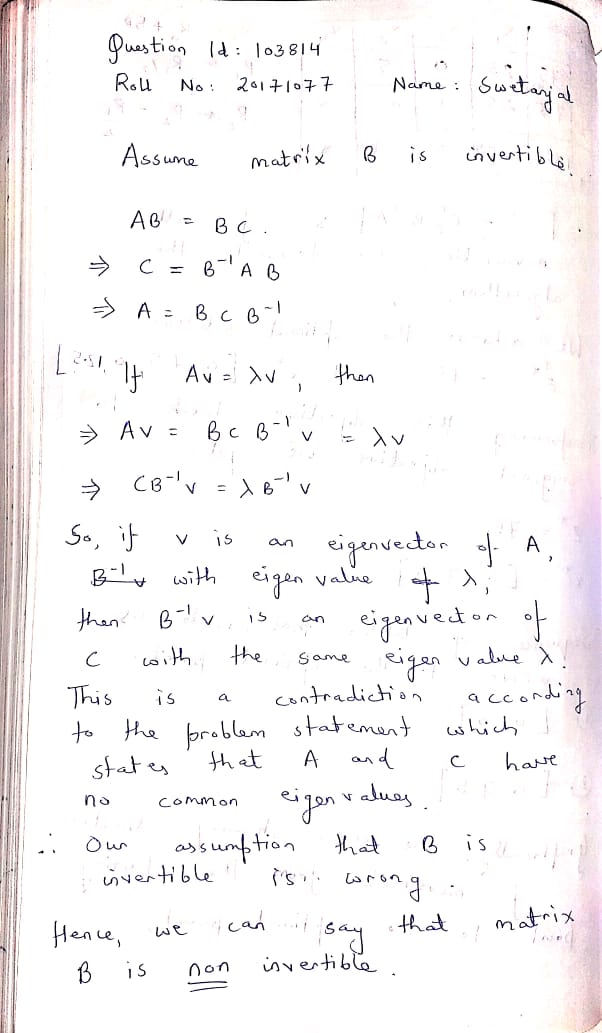 Question Id : 103814
Roll No : 20171077 Name : Swetanjal
Assume matrix B is invertible.
AB = BC.
⇒ C = B⁻¹AB
⇒ A = BCB⁻¹
If Av = λv, then
⇒ Av = BCB⁻¹v = λv
⇒ CB⁻¹v = λB⁻¹v
So, if v is an eigenvector of A,
B⁻¹v with eigen value of λ,
then B⁻¹v is an eigenvector of
C with the same eigen value λ.
This is a contradiction according
to the problem statement which
states that A and C have
no common eigen values.
∴ Our assumption that B is
invertible is wrong.
Hence, we can say that matrix
B is non invertible.